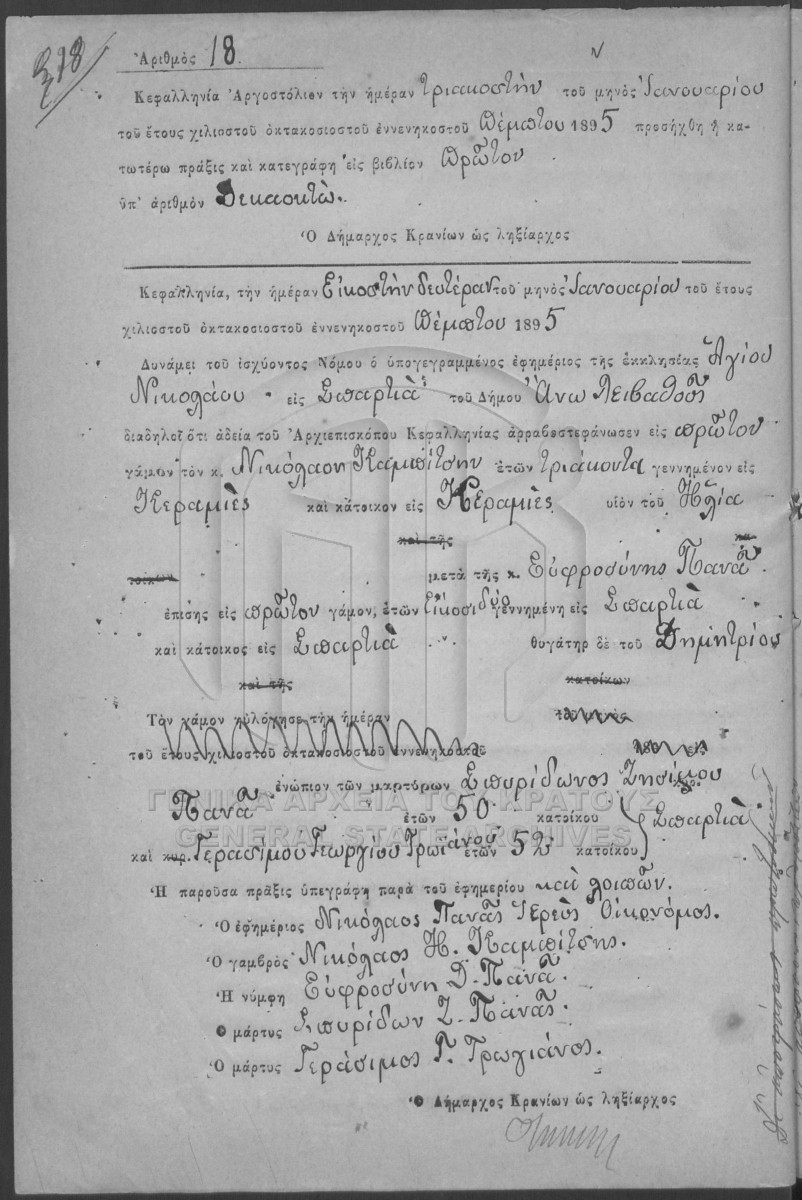 318
Ἀριθμὸς 18.
Κεφαλληνία Ἀργοστόλιον τὴν ἡμέραν τριακοστὴν τοῦ μηνὸς Ἰανουαρίου
τοῦ ἔτους χιλιοστοῦ ὀκτακοσιοστοῦ ἐννενηκοστοῦ Πέμπτου 1895 προσήχθη ἡ κα-
τωτέρω πρᾶξις καὶ κατεγράφη εἰς βιβλίον Πρῶτον
ὑπ' ἀριθμὸν Δεκαοκτὼ.
Ὁ Δήμαρχος Κρανίων ὡς ληξίαρχος
Κεφαλληνία, τὴν ἡμέραν Εἰκοστὴν δευτέραν τοῦ μηνὸς Ἰανουαρίου τοῦ ἔτους
χιλιοστοῦ ὀκτακοσιοστοῦ ἐννενηκοστοῦ Πέμπτου 1895
Δυνάμει τοῦ ἰσχύοντος Νόμου ὁ ὑπογεγραμμένος ἐφημέριος τῆς ἐκκλησίας Ἁγίου
Νικολάου εἰς Σπαρτιὰ τοῦ Δήμου Ἄνω Λειβαθοῦς
διαδηλοῖ ὅτι ἀδεία τοῦ Ἀρχιεπισκόπου Κεφαλληνίας ἀρραβοστεφάνωσεν εἰς πρῶτον
γάμον τὸν κ. Νικόλαον Καμπίτσην ἐτῶν τριάκοντα γεννημένον εἰς
Κεραμιὲς καὶ κάτοικον εἰς Κεραμιὲς υἱὸν τοῦ Ἠλία
καὶ τῆς κα-
τοίκων μετὰ τῆς κ. Εὐφροσύνης Πανᾶ.
ἐπίσης εἰς πρῶτον γάμον, ἐτῶν Εἴκοσι δύο γεννημένη εἰς Σπαρτιὰ
καὶ κάτοικος εἰς Σπαρτιὰ θυγάτηρ δὲ τοῦ Δημητρίου
καὶ τῆς κατοίκων
Τὸν γάμον ηὐλόγησε τὴν ἡμέραν τοῦ μηνὸς
τοῦ ἔτους χιλιοστοῦ ὀκτακοσιοστοῦ ἐννενηκοστοῦ 189 εἰς
ἐνώπιον τῶν μαρτύρων Σπυρίδωνος Ζησίμου
Πανᾶ ἐτῶν 50 κατοίκου Σπαρτιὰ
καὶ κυρ. Γερασίμου Γεωργίου Τρωϊάνου ἐτῶν 52 κατοίκου
Ἡ παροῦσα πρᾶξις ὑπεγράφη παρὰ τοῦ ἐφημερίου καὶ λοιπῶν.
Ὁ ἐφημέριος Νικόλαος Πανᾶς Ἱερεὺς Οἰκονόμος.
Ὁ γαμβρὸς Νικόλαος Η. Καμπίτσης.
Ἡ νύμφη Εὐφροσύνη Δ. Πανᾶ.
Ὁ μάρτυς Σπυρίδων Ζ. Πανᾶς.
Ὁ μάρτυς Γεράσιμος Γ. Τρωγιάνος.
Ὁ Δήμαρχος Κρανίων ὡς ληξίαρχος
ΓΕΝΙΚΑ ΑΡΧΕΙΑ ΤΟΥ ΚΡΑΤΟΥΣ
GENERAL STATE ARCHIVES